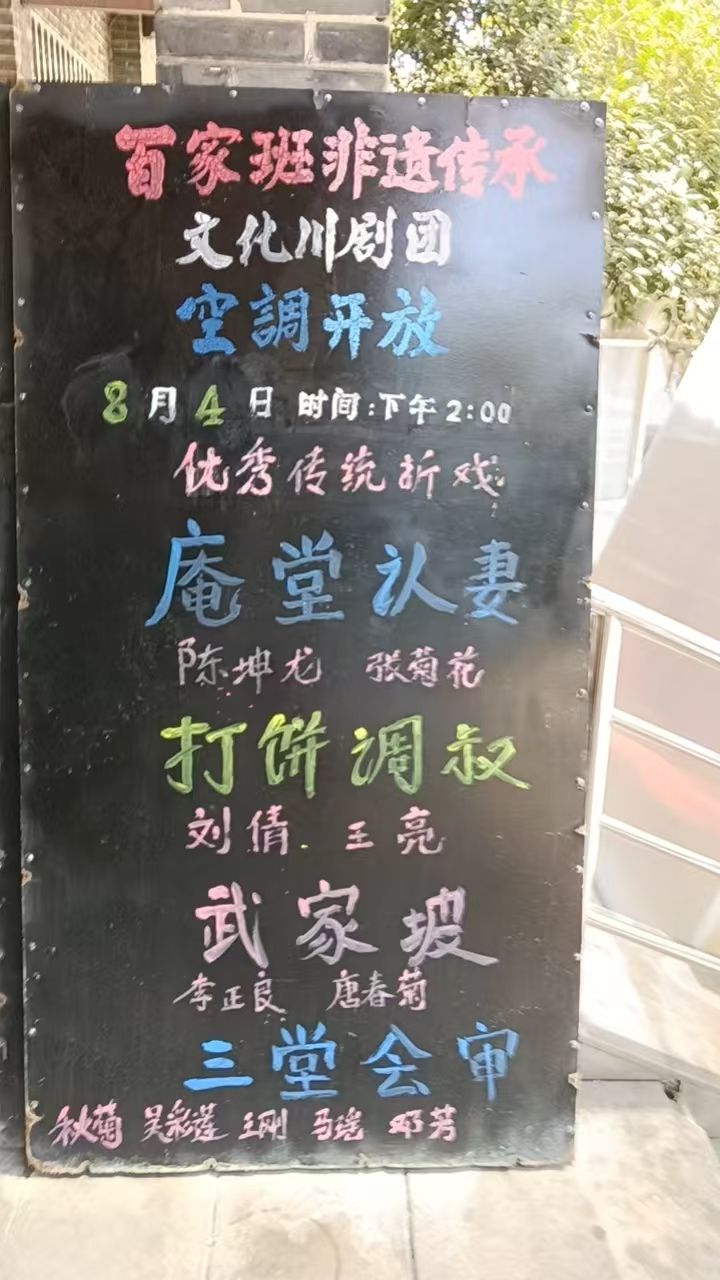 百家班非遗传承
文化川剧团
空調开放
8月4日 时间:下午2:00
优秀传统折戏
庵堂认妻
陈坤龙 张菊花
打饼调叔
刘倩 王亮
武家坡
李正良 唐春菊
三堂会审
秋菊 吴彩莲 王刚 马瑶 邓芳